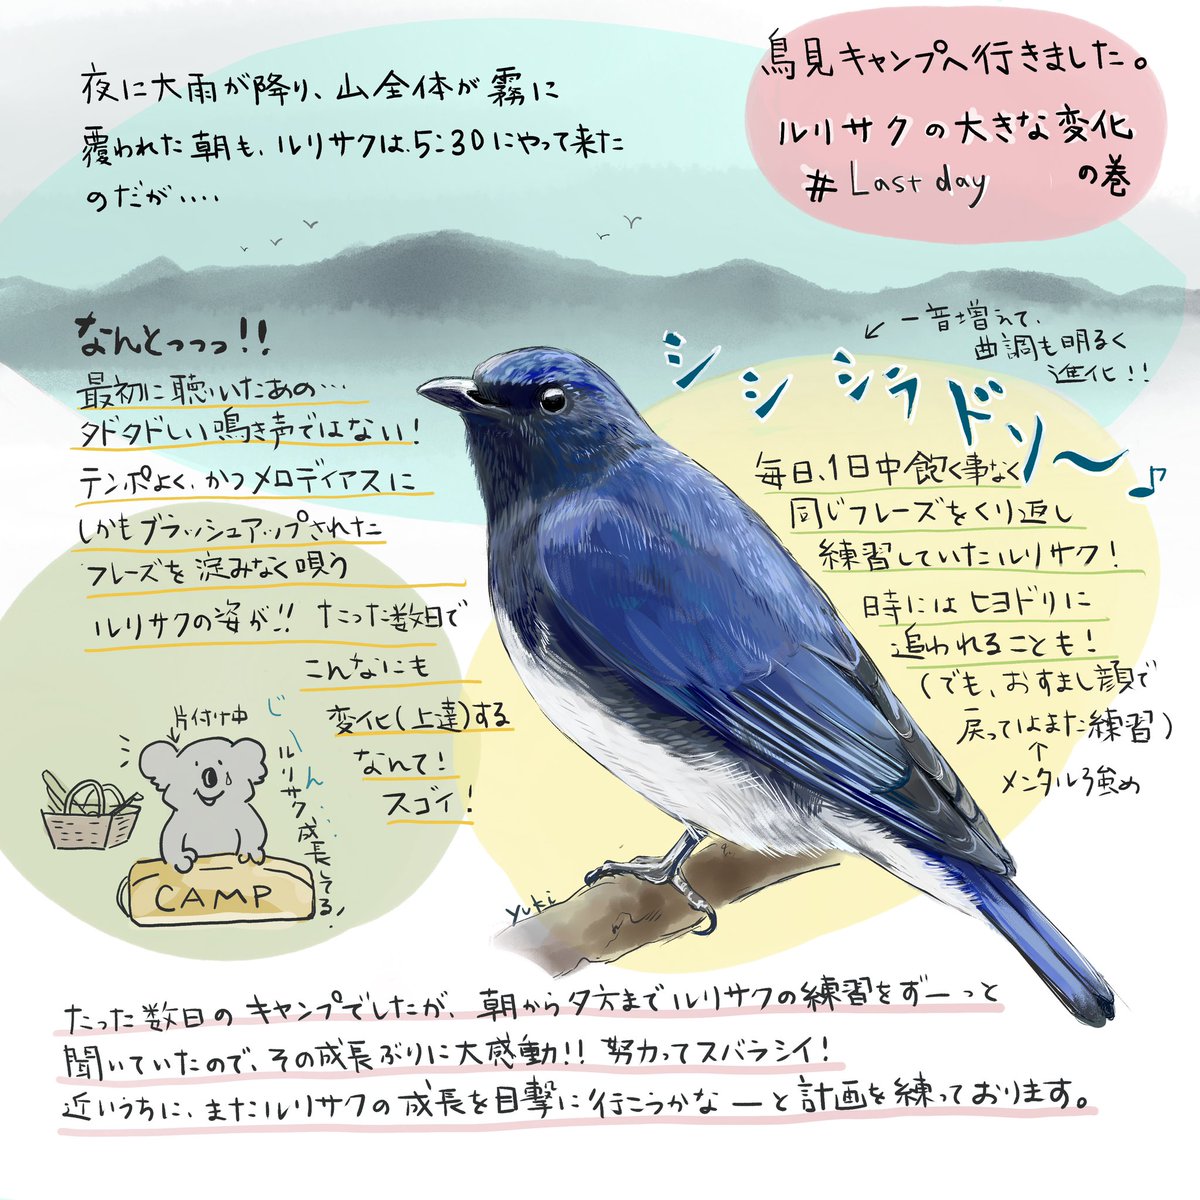 鳥見キャンプへ行きました。
ルリサクの大きな変化
の巻
# Last day
夜に大雨が降り、山全体が霧に
覆われた朝も、ルリサクは5:30にやって来た
のだが....
なんとっっっ!!
最初に聴いたあの...
タドタドしい鳴き声ではない!
テンポよく、かつメロディアスに
しかもブラッシュアップされた
フレーズを淀みなく唄う
ルリサクの姿が!! たった数日で
こんなにも
変化(上達)する
なんて!
スゴイ!
← 一音増えて、
曲調も明るく
進化!!
シシシラドソ〜♪
毎日、1日中飽く事なく
同じフレーズをくり返し
練習していたルリサク!
時にはヒヨドリに
追われることも!
(でも、おすまし顔で
戻ってはまた練習)
↑
メンタル強め
片付け中
じーん...
ルリサク成長してる!
CAMP
yuki
たった数日のキャンプでしたが、朝から夕方までルリサクの練習をずーっと
聞いていたので、その成長ぶりに大感動!! 努力ってスバラシイ!
近いうちに、またルリサクの成長を目撃に行こうかなーと計画を練っております。